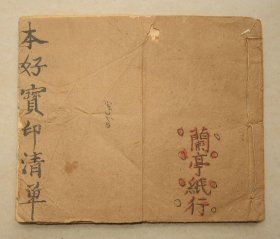 本好寳印清单
蘭亭紙行